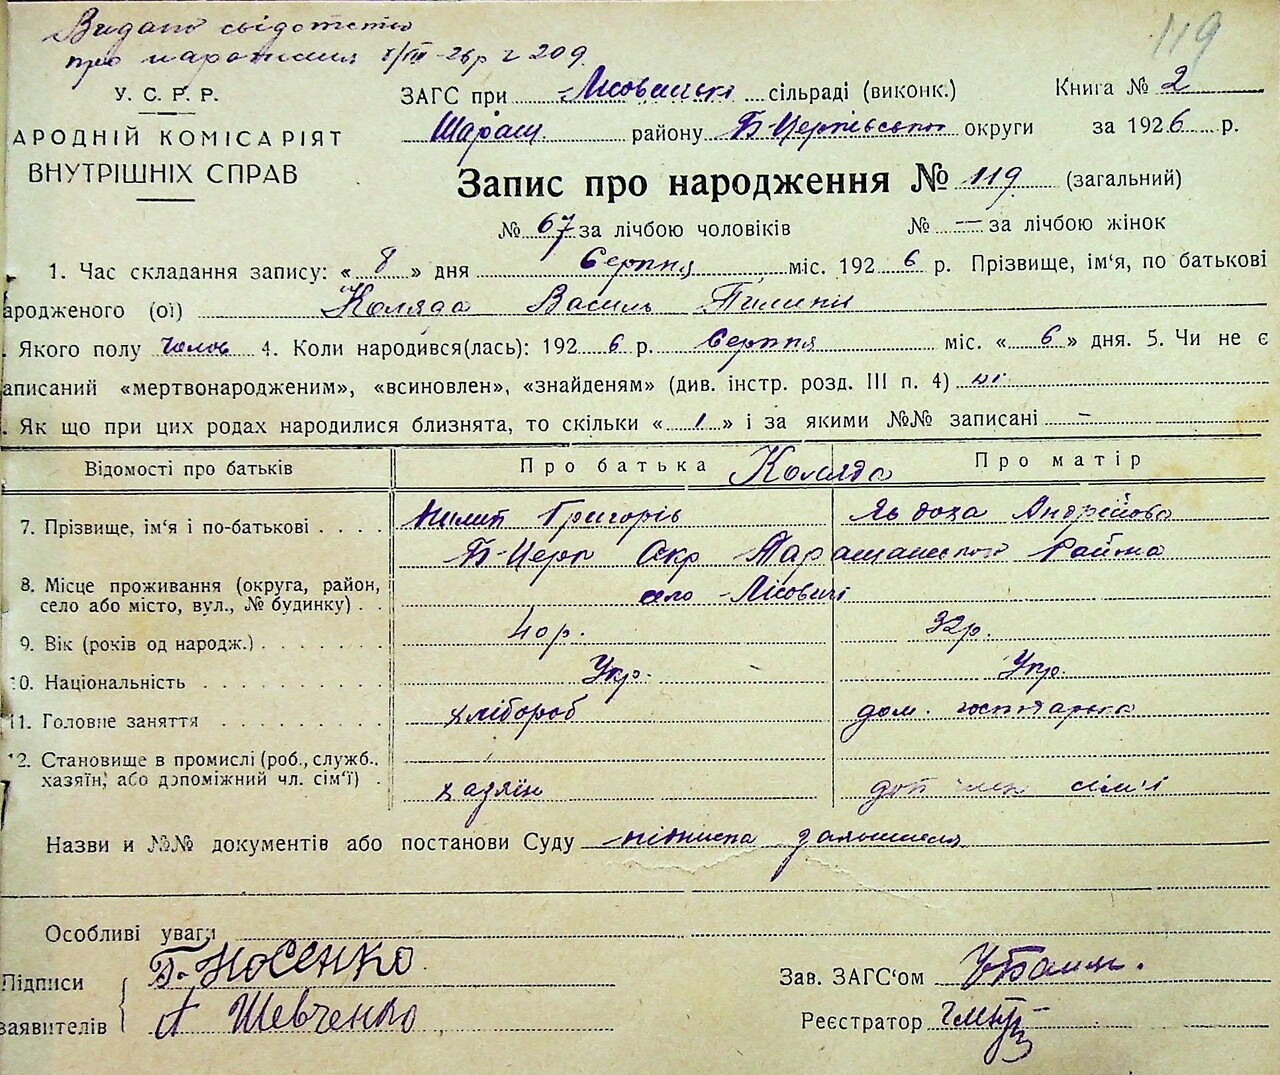 Видано свідотство
про нарожения 8/III-26р г 209.
119
У. С. Р. Р.
АРОДНІЙ КОМІСАРІЯТ
ВНУТРІШНІХ СПРАВ
ЗАГС при Лісовицькі сільраді (виконк.) Книга № 2
Таращ району Б-Церківської округи за 1926 р.
Запис про народження № 119 (загальний)
№ 67 за лічбою чоловіків № — за лічбою жінок
1. Час складання запису: « 8 » дня Серпня міс. 1926 р. Прізвище, ім‘я, по батькові
ародженого (ої) Коляда Василь Пилипів
. Якого полу челов 4. Коли народився(лась): 1926 р. Серпня міс. « 6 » дня. 5. Чи не є
аписаний «мертвонародженим», «всиновлен», «знайденям» (див. інстр. розд. III п. 4) ні
. Як що при цих родах народилися близнята, то скільки « 1 » і за якими №№ записані —
Відомості про батьків Про батька Коляда Про матір
7. Прізвище, ім‘я і по-батькові . . . . Пилип Григорів Явдоха Андрійова
Б-Церк Окр Таращанської Района
8. Місце проживання (округа, район,
село або місто, вул., № будинку) . . село -Лісовичі
9. Вік (років од народж.) . . . . . . . 40р. 32р.
10. Національність . . . . . . . . . Укр. Укр.
11. Головне заняття . . . . . . . . . хлібороб дом. господарька
12. Становище в промислі (роб., служб.,
хазяїн, або допоміжний чл. сім‘ї) . хазяїн доп член сімї
Назви и №№ документів або постанови Суду
Особливі уваги
Підписи
заявителів
Б. Носенко
А Шевченко
Зав. ЗАГС‘ом
Реєстратор